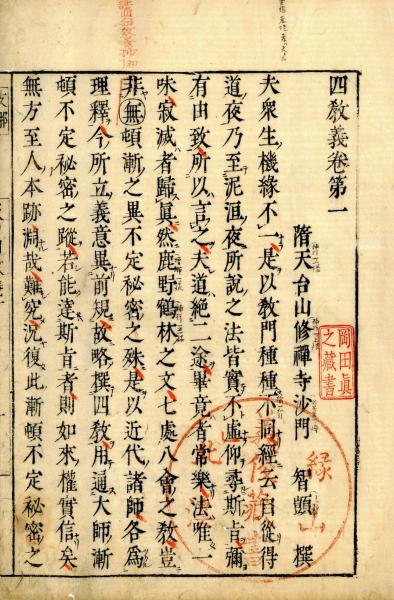 四教義卷第一
隋天台山修禪寺沙門 智顗 撰
夫衆生機緣不一是以教門種種不同經云自從得
道夜乃至泥洹夜所說之法皆實不虛仰尋斯旨彌
有由致所以言之夫道絕二途畢竟者常樂法唯一
味寂滅者歸眞然鹿野鶴林之文七處八會之教豈
非無頓漸之異不定秘密之殊是以近代諸師各爲
理釋今所立義意異前規故略撰四教用通大師漸
頓不定秘密之蹤若能達斯旨者則如來權實信矣
無方至人本跡洞哉難究況復此漸頓不定秘密之
岡田眞
之藏書
緣山